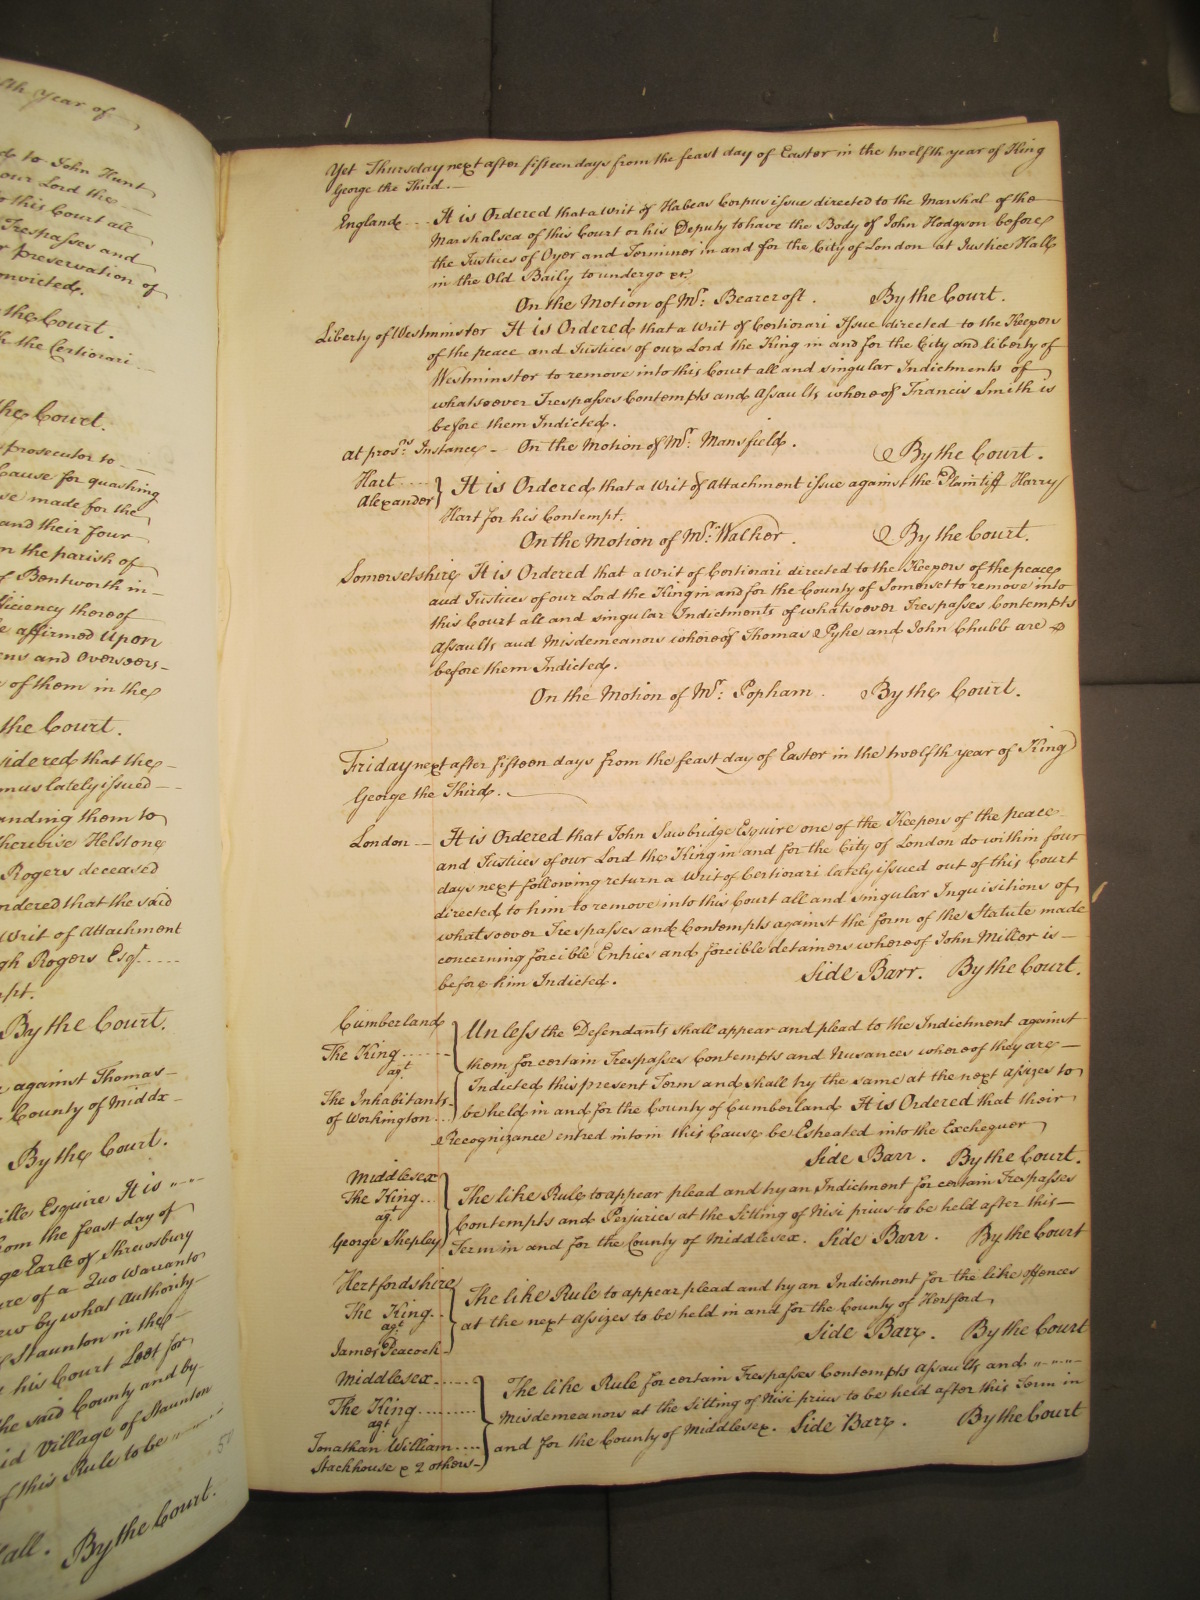 th Year of
to John Hunt
our Lord the
this Court all
Trespasses and
preservation of
onvicted.
the Court.
the Certiorari
the Court.
prosecutor to
Cause for quashing
se made for the
and their four
n the parish of
f Bentworth in
ficiency thereof
e affirmed Upon
ens and Overseers
of them in the
the Court.
sidered that the
mus lately issued
anding them to
therwise Helstone
Rogers deceased
ndered that the said
Writ of Attachment
gh Rogers Esqr.
mpt.
By the Court.
against Thomas
County of Middx
By the Court.
ille Esquire It is
rom the feast day of
ge Earle of Shrewsbury
ure of a Quo Warranto
ew by what Authority
f Staunton in the
his Court Leet for
he said County and by
id Village of Staunton
f this Rule to be
Hall. By the Court.
Yet Thursday next after fifteen days from the feast day of Easter in the twelfth year of King
George the Third.
England It is Ordered that a Writ of Habeas Corpus issue directed to the Marshal of the
Marshalsea of this Court or his Deputy to have the Body of John Hodgson before
the Justices of Oyer and Terminer in and for the City of London at Justice Hall
in the Old Baily to undergo &c.
On the Motion of Mr. Bearcroft. By the Court.
Liberty of Westminster It is Ordered that a Writ of Certiorari Issue directed to the Keepers
of the peace and Justices of our Lord the King in and for the City and liberty of
Westminster to remove into this Court all and singular Indictments of
whatsoever Trespasses Contempts and Assaults whereof Francis Smith is
before them Indicted.
at prosrs. Instance - On the Motion of Mr. Mansfield. By the Court.
Hart
Alexander } It is Ordered that a Writ of Attachment issue against the Plaintiff Harry
Hart for his Contempt.
On the Motion of Mr. Walker. By the Court.
Somersetshire It is Ordered that a Writ of Certiorari directed to the Keepers of the peace
and Justices of our Lord the King in and for the County of Somerset to remove into
this Court all and singular Indictments of whatsoever Trespasses Contempts
Assaults and Misdemeanors whereof Thomas Pyke and John Chubb are
before them Indicted.
On the Motion of Mr. Popham. By the Court.
Friday next after fifteen days from the feast day of Easter in the twelfth year of King
George the Third.
London It is Ordered that John Sawbridge Esquire one of the Keepers of the peace
and Justices of our Lord the King in and for the City of London do within four
days next following return a Writ of Certiorari lately issued out of this Court
directed to him to remove into this Court all and singular Inquisitions of
whatsoever Trespasses and Contempts against the form of the Statute made
concerning forcible Entries and forcible detainers whereof John Miller is
before him Indicted. Side Barr. By the Court.
Cumberland
The King
agt.
The Inhabitants
of Workington } Unless the Defendants shall appear and plead to the Indictment against
them for certain Trespasses Contempts and Nusances whereof they are
Indicted this present Term and shall try the same at the next Assizes to
be held in and for the County of Cumberland It is Ordered that their
Recognizance entred into in this Cause be Estreated into the Exchequer
Side Barr. By the Court.
Middlesex
The King
agt.
George Shepley } The like Rule to appear plead and try an Indictment for certain Trespasses
Contempts and Perjuries at the Sitting of Nisi prius to be held after this
Term in and for the County of Middlesex. Side Barr. By the Court
Hertfordshire
The King
agt.
James Peacock } The like Rule to appear plead and try an Indictment for the like offences
at the next assizes to be held in and for the County of Hertford
Side Barr. By the Court
Middlesex
The King
agt.
Jonathan William
Stackhouse & 2 others } The like Rule for certain Trespasses Contempts Assaults and
Misdemeanors at the Sitting of Nisi prius to be held after this Term in
and for the County of Middlesex. Side Barr. By the Court